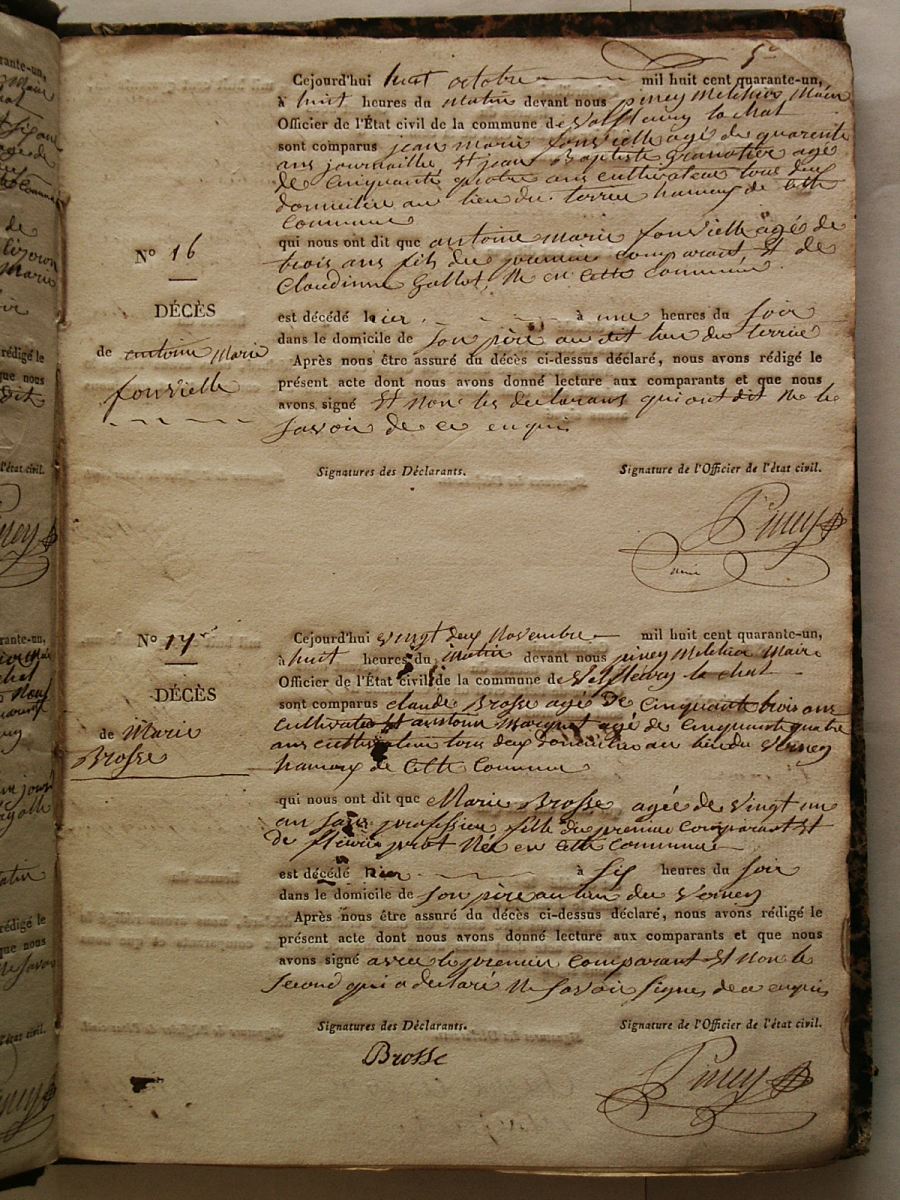 5
Cejourd'hui huit octobre mil huit cent quarante-un,
à huit heures du matin devant nous piney Melchior Maire
Officier de l'État civil de la commune de Valfleury la chat
sont comparus jean marie fonvielle agé de quarente
ans journaillé et jean Baptiste Granotier agé
de cinquante quatre ans cultivateur tous deux
domicilier au lieu du terrea hameau de cette
commune
N° 16
qui nous ont dit que antoine marie fonvielle agé de
trois ans fils du premier comparant et de
Claudinne Gallot, Né en cette commune.
DÉCÈS
de antoine Marie
fonvielle
est décédé hier à une heures du soir
dans le domicile de son père au dit lieu du terrea
Après nous être assuré du décès ci-dessus déclaré, nous avons rédigé le
présent acte dont nous avons donné lecture aux comparants et que nous
avons signé et Non les declarans qui ont dit Ne le
savoir de ce enquis
Signatures des Déclarants.
Signature de l'Officier de l'état civil.
Piney
N° 17
Cejourd'hui vingt deux Novembre mil huit cent quarante-un,
à huit heures du matin devant nous piney Melchior Maire
Officier de l'État civil de la commune de Valfleury la chat
DÉCÈS
de Marie
Brosse
sont comparus claude Brosse agé de cinquante trois ans
cultivateur et antoine agé de cinquante quatre
ans cultivateur tous deux domicilier au lieu du Verney
hameau de cette commune
qui nous ont dit que Marie Brosse agée de vingt un
an sans profession fille du premier comparant et
de fleurie Née en cette commune
est décédé hier à six heures du soir
dans le domicile de son père au lieu du Verney
Après nous être assuré du décès ci-dessus déclaré, nous avons rédigé le
présent acte dont nous avons donné lecture aux comparants et que nous
avons signé avec le premier comparant et non le
second qui a declaré Ne savoir signer de ce enquis
Signatures des Déclarants.
Signature de l'Officier de l'état civil.
Brosse
Piney